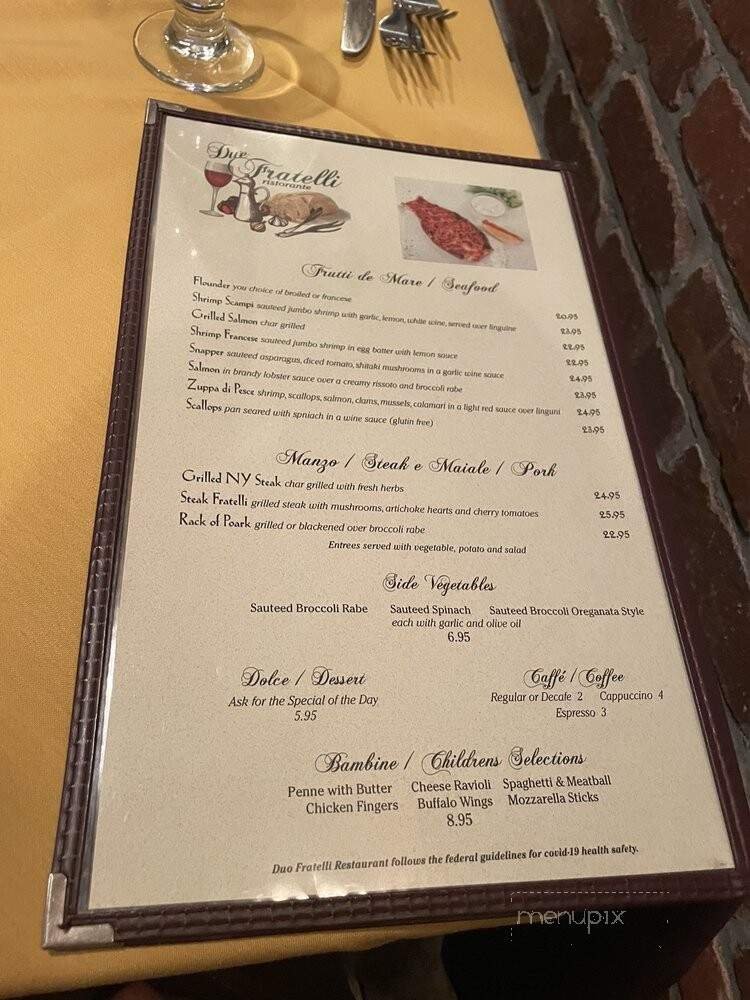 Due
Fratelli
ristorante
Frutti de Mare / Seafood
Flounder you choice of broiled or francese 20.95
Shrimp Scampi sauteed jumbo shrimp with garlic, lemon, while wine, served over linguine 23.95
Grilled Salmon char grilled 22.95
Shrimp Francese sauteed jumbo shrimp in egg batter with lemon sauce 22.95
Snapper sauteed asparagus, diced tomato, shitaki mushrooms in a garlic wine sauce 24.95
Salmon in brandy lobster sauce over a creamy rissoto and broccoli rabe 23.95
Zuppa di Pesce shrimp, scallops, salmon, clams, mussels, calamari in a light red sauce over linguni 24.95
Scallops pan seared with spniach in a wine sauce (glutin free) 23.95
Manzo / Steak e Maiale / Pork
Grilled NY Steak char grilled with fresh herbs 24.95
Steak Fratelli grilled steak with mushrooms, artichoke hearts and cherry tomatoes 25.95
Rack of Poark grilled or blackened over broccoli rabe 22.95
Entrees served with vegetable, potato and salad
Side Vegetables
Sauteed Broccoli Rabe Sauteed Spinach Sauteed Broccoli Oreganata Style
each with garlic and olive oil
6.95
Dolce / Dessert
Ask for the Special of the Day
5.95
Caffé / Coffee
Regular or Decafe 2 Cappuccino 4
Espresso 3
Bambine / Childrens Selections
Penne with Butter Cheese Ravioli Spaghetti & Meatball
Chicken Fingers Buffalo Wings Mozzarella Sticks
8.95
Duo Fratelli Restaurant follows the federal guidelines for covid-19 health safety.
menupix